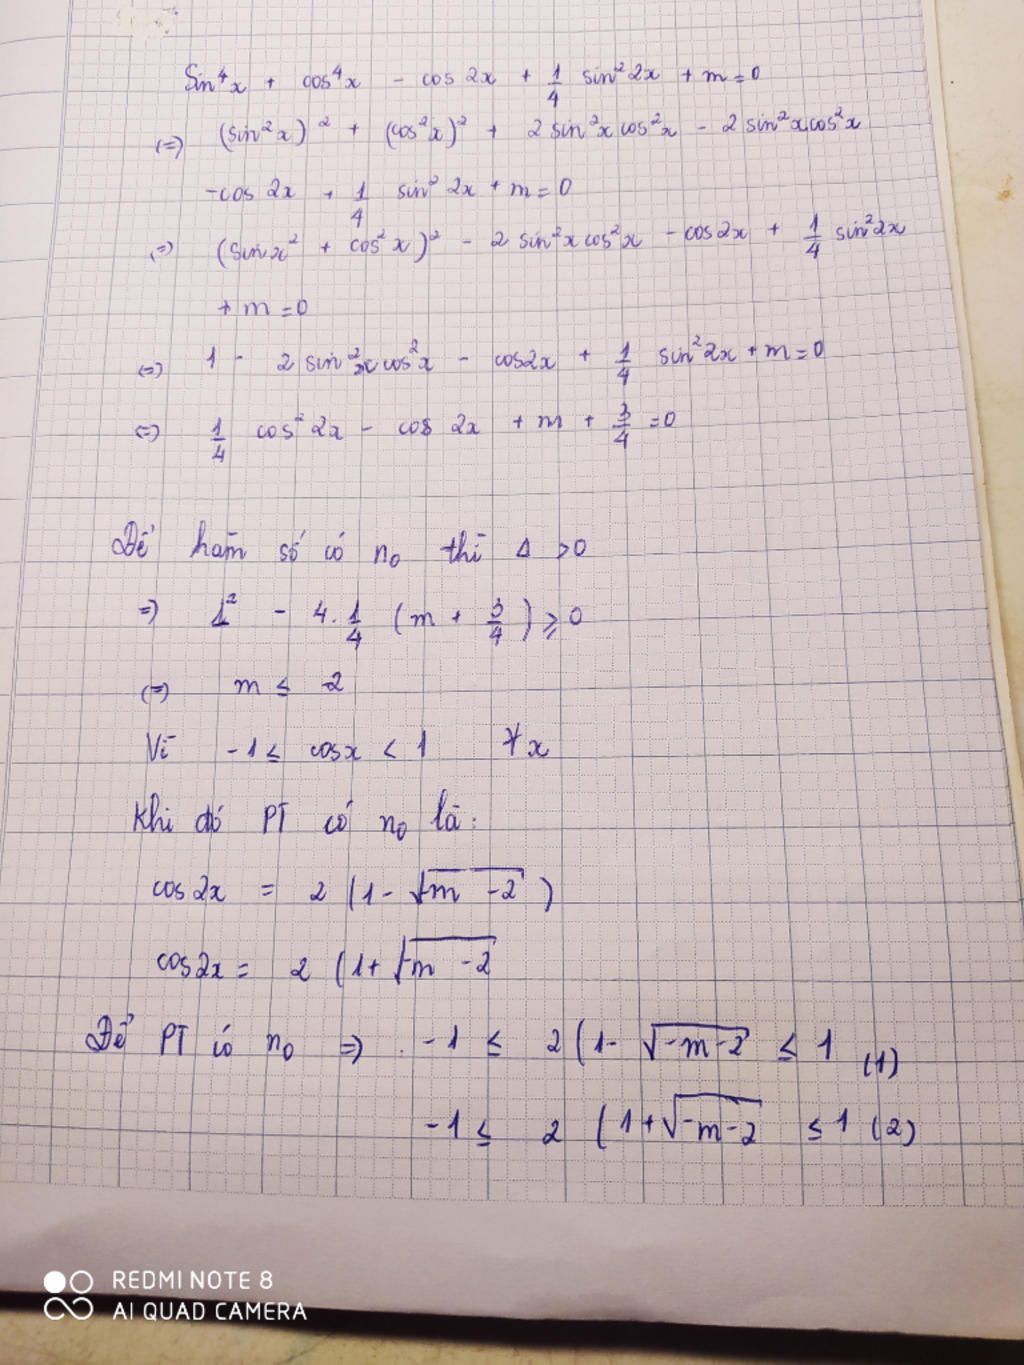 Sin⁴x + cos⁴x - cos 2x + 1/4 sin² 2x + m = 0
(=) (sin²x)² + (cos²x)² + 2 sin²x cos²x - 2 sin²x cos²x
-cos 2x + 1/4 sin² 2x + m = 0
=) (sin x² + cos² x)² - 2 sin²x cos²x - cos2x + 1/4 sin²2x
+ m = 0
(=) 1 - 2 sin²x cos²x - cos2x + 1/4 sin²2x + m = 0
(=) 1/4 cos² 2x - cos 2x + m + 3/4 = 0
Để hàm số có n₀ thì Δ > 0
=) 1² - 4. 1/4 (m + 3/4) ⩾ 0
(=) m ≤ -2
Vì -1 ≤ cosx < 1 ∀x
Khi đó PT có n₀ là:
cos 2x = 2 (1 - √m - 2)
cos2x = 2 (1 + √-m - 2
Để PT có n₀ =) -1 ≤ 2 (1 - √-m-2 ≤ 1 (1)
-1 ≤ 2 (1 + √-m-2 ≤ 1 (2)
REDMI NOTE 8
AI QUAD CAMERA